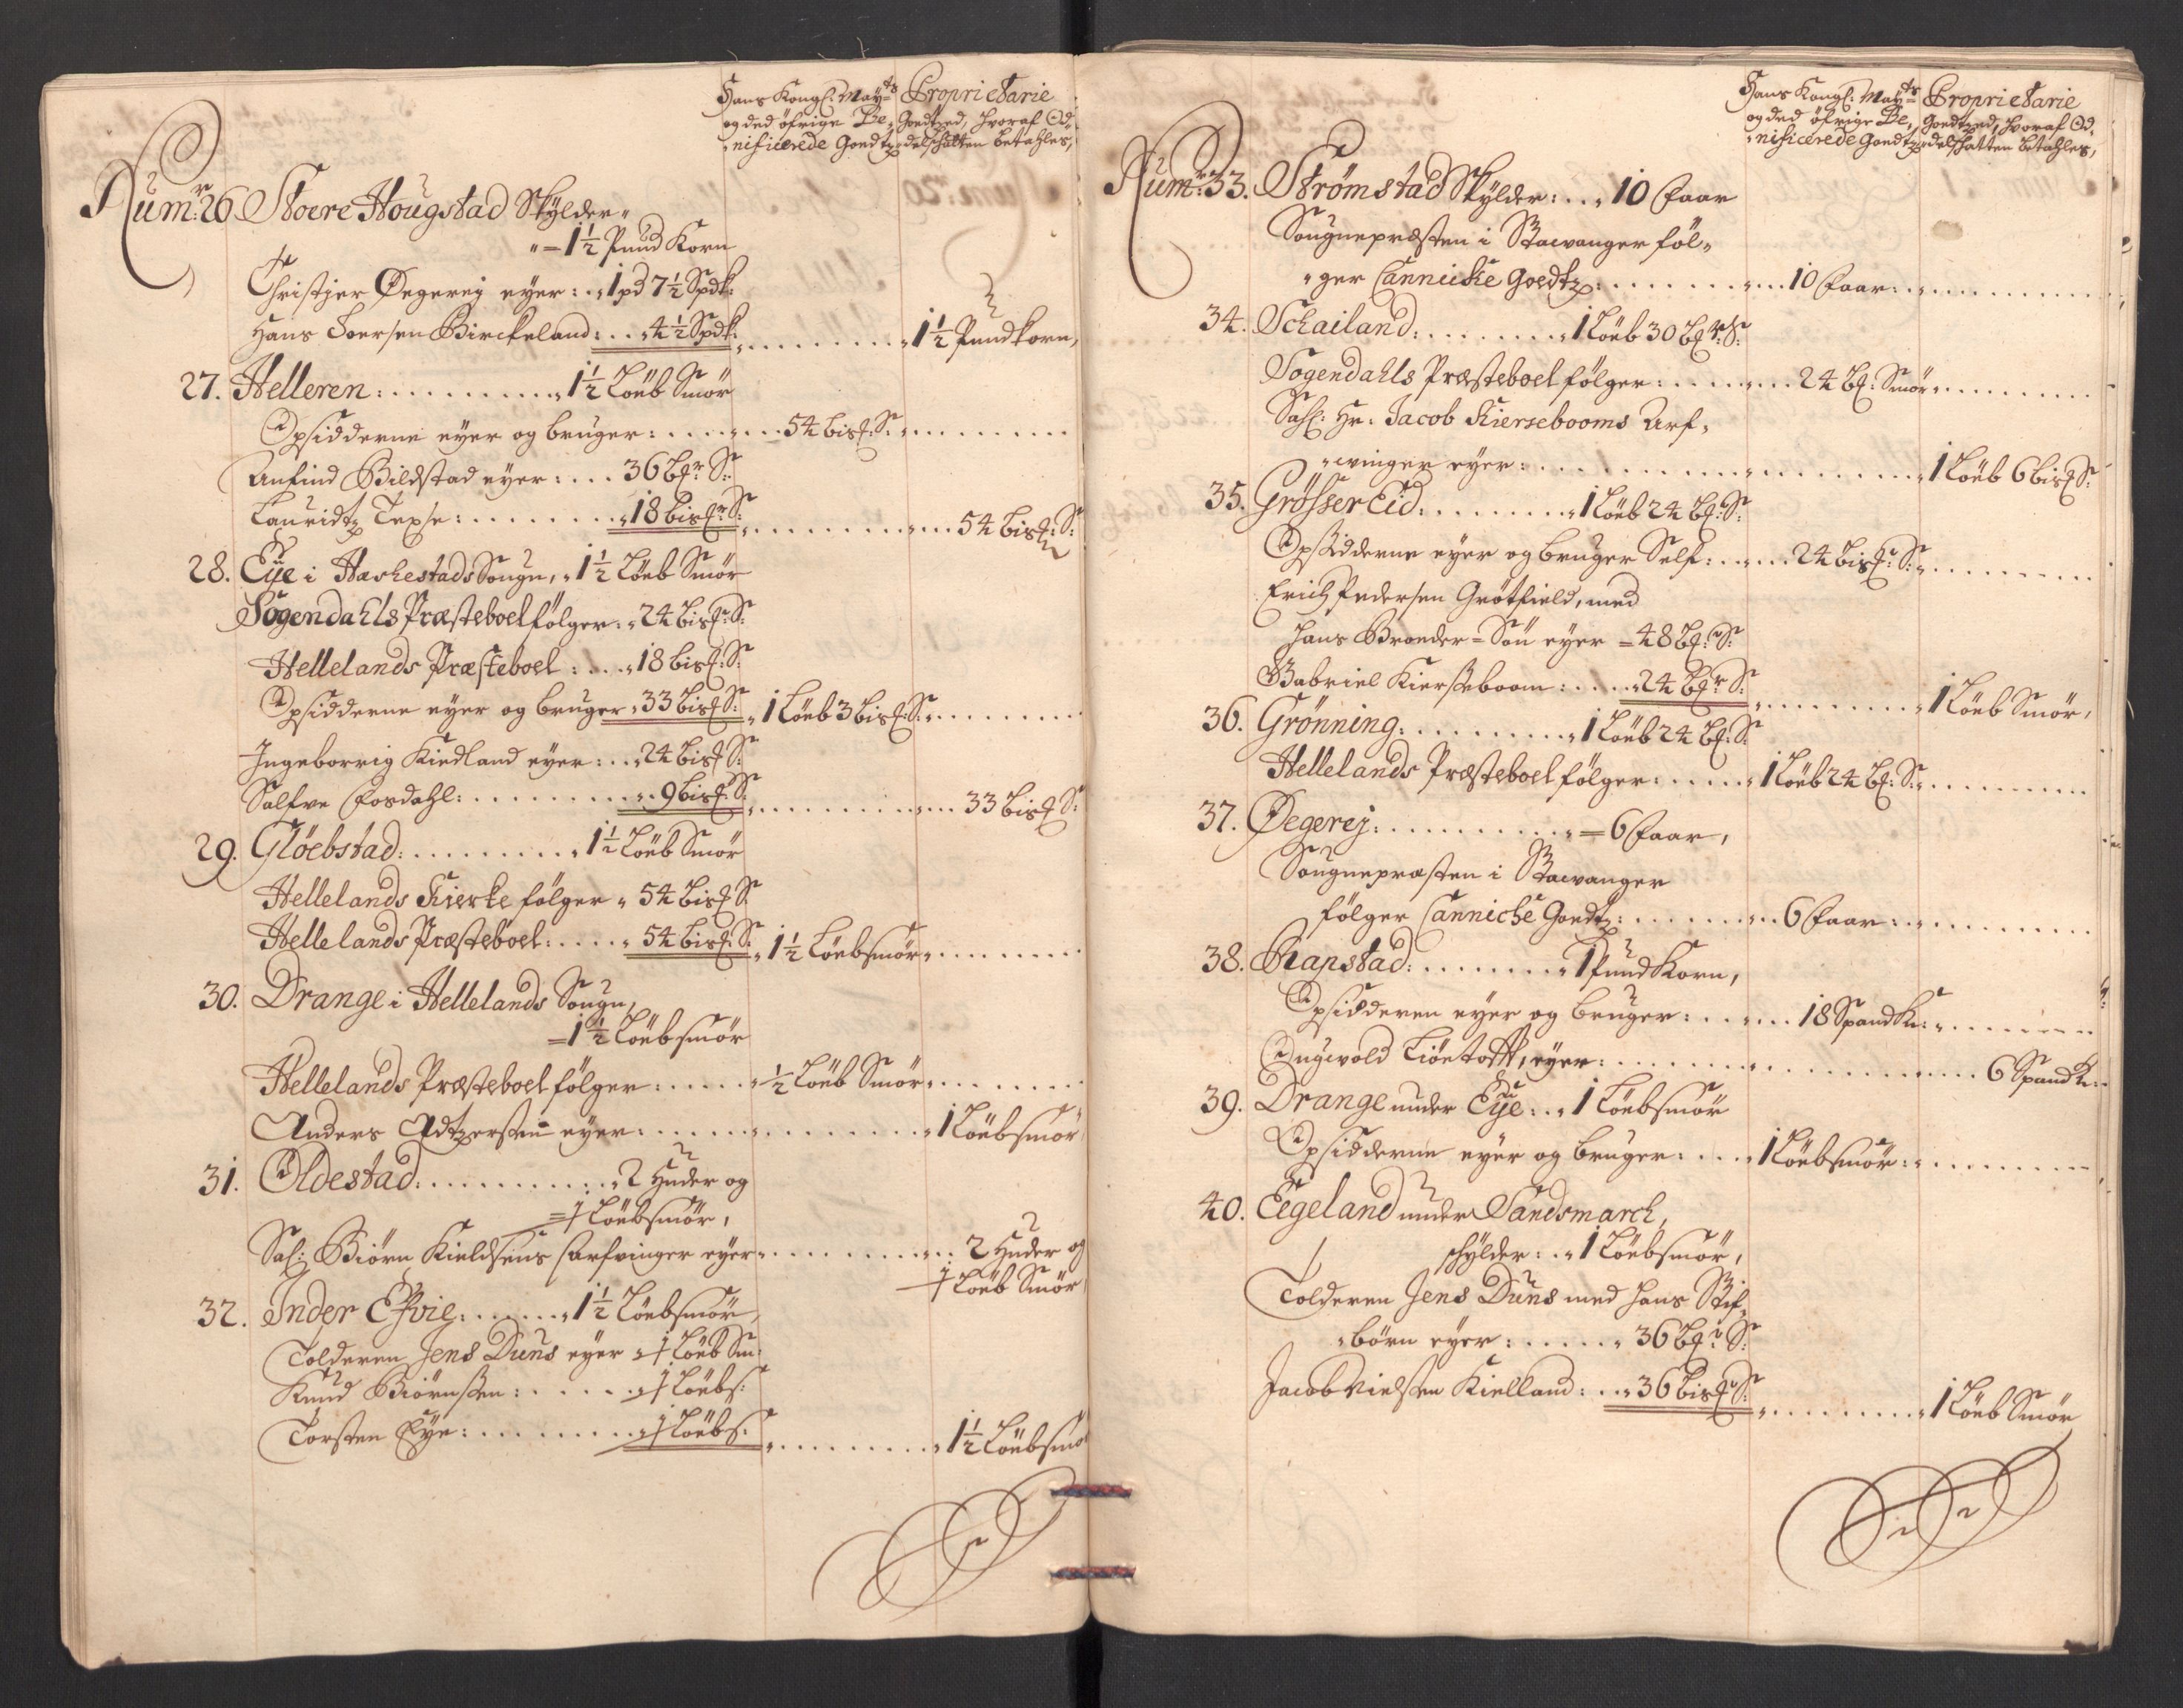 Hans Kongl: May:ts Proprietarie
og ded öfrige Be- Goedtzed, hvoraf Od-
nificerede Goedtz delschatten betahles,
Num:r 26. Stoere Hougstad Skylder
= 1½ Pund Korn
Christjer Øegereij eyer: 1 pd 7½ Spdk:
Hans Iversen Birckeland: 4½ Spdk: 1½ Pundkorn,
27. Helleren: 1½ Löeb Smör
Opsidderne eyer og bruger: 54 bisf: S:
Anfind Bildstad eyer: 36 bf:r S:
Lauridtz Texse: 18 bisf:r S: 54 bisf: S:
28. Eije i Haskestads Sougn, 1½ Löeb Smör
Sogendahls Præsteboel følger: 24 bisf:r S:
Hellelands Præsteboel: 18 bisf: S:
Opsidderne eyer og bruger 33 bisf S: 1 Löeb 3 bisf: S:
Ingeborrig Kiedland eyer: 24 bisf S:
Salfve Fosdahl: 9 bisf: S: 33 bisf S:
29. Gløebstad: 1½ Löeb Smör
Hellelands Kierke følger 54 bisf S
Hellelands Præsteboel: 54 bisf: S: 1½ Löebsmör
30. Drange i Hellelands Sougn,
= 1½ Löebsmör
Hellelands Præsteboel følger: ½ Löeb Smör
Anders Adtzersten eyer: 1 Löebsmör
31. Oldestad: 2 Huder og
= ½ Löebsmör,
Sal: Biörn Kieldsens Arfvinger eyer 2 Huder og
½ Löeb Smör
32. Inder Esvig: 1½ Löebsmör,
Tolderen Jens Duns eyer ½ Löeb Sm:
Knud Biörnsen: ½ Löebs:
Torsten Eye: ½ Löebs: 1½ Löebsmö
Hans Kongl: May:ts Proprietarie
og ded öfrige Be- Goedtzed, hvoraf Od-
nificerede Goedtz delschatten betahles,
Num:r 33. Strømstad Skylder: 10 Faar
Sougnepræsten i Stawanger föl-
ger Cannicke Goedtz: 10 Faar:
34. Schailand: 1 Löeb 30 bf:r S:
Sogendahls Præsteboel følger: 24 bf: Smör
Sahl: Hr: Jacob Kiersebooms Arf-
winger eyer: 1 Löeb 6 bisf S:
35. Grösser Eid: 1 Löeb 24 bf:r S:
Opsidderne eyer og bruger Self: 24 bisf: S:
Erich Pedersen Grötfield, med
hans Broeder-Sön eyer = 48 bf:r S:
Gabriel Kierseboom: 24 bf:r S: 1 Löeb Smör,
36. Grönning: 1 Löeb 24 bf: S:
Hellelands Præsteboel følger: 1 Löeb 24 bf: S:
37. Øegereij: = 6 Faar,
Sougnepræsten i Stawanger
følger Canniche Goedtz: 6 Faar:
38. Rapstad: 1 Pund Korn,
Opsidderen eyer og bruger: 18 Spand K:
Augwold Liöetoft, eyer: 6 Spand K:
39. Drange under Eije: 1 Löebsmör
Opsidderne eyer og bruger: 1 Löebsmör:
40. Eegeland under Sandsmarch,
schylder: 1 Löebsmör,
Tolderen Jens Duns med hans Stif-
börn eyer: 36 bf:r S:
Jacob Nielsen Kielland: 36 bisf:r S: 1 Löeb Smör